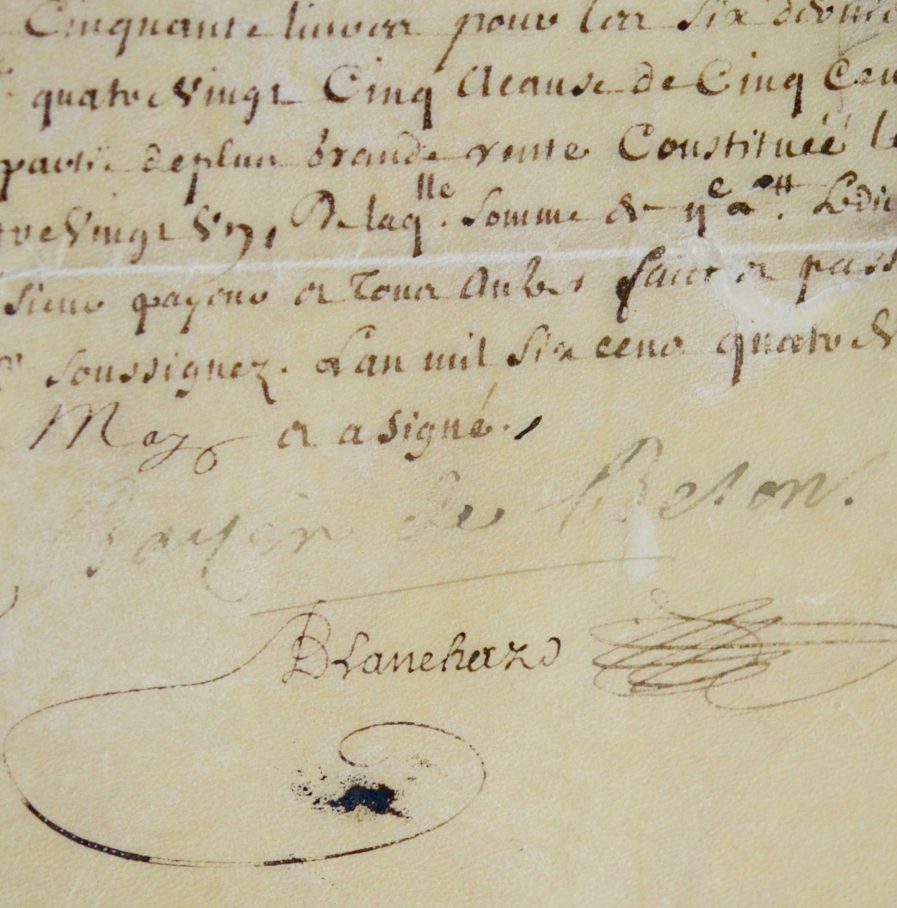 Cinquante livres pour les six derniers
quatre Vingt Cinq acause de Cinq Cen
partie de plus Grande rente Constituée le
tre Vingt Un, De laqlle. Somme de
Sieur payeur et Tous Autres faict et pass
soussignez. Lan mil Six cens quatre V
May et a signé.
de
Blanchard